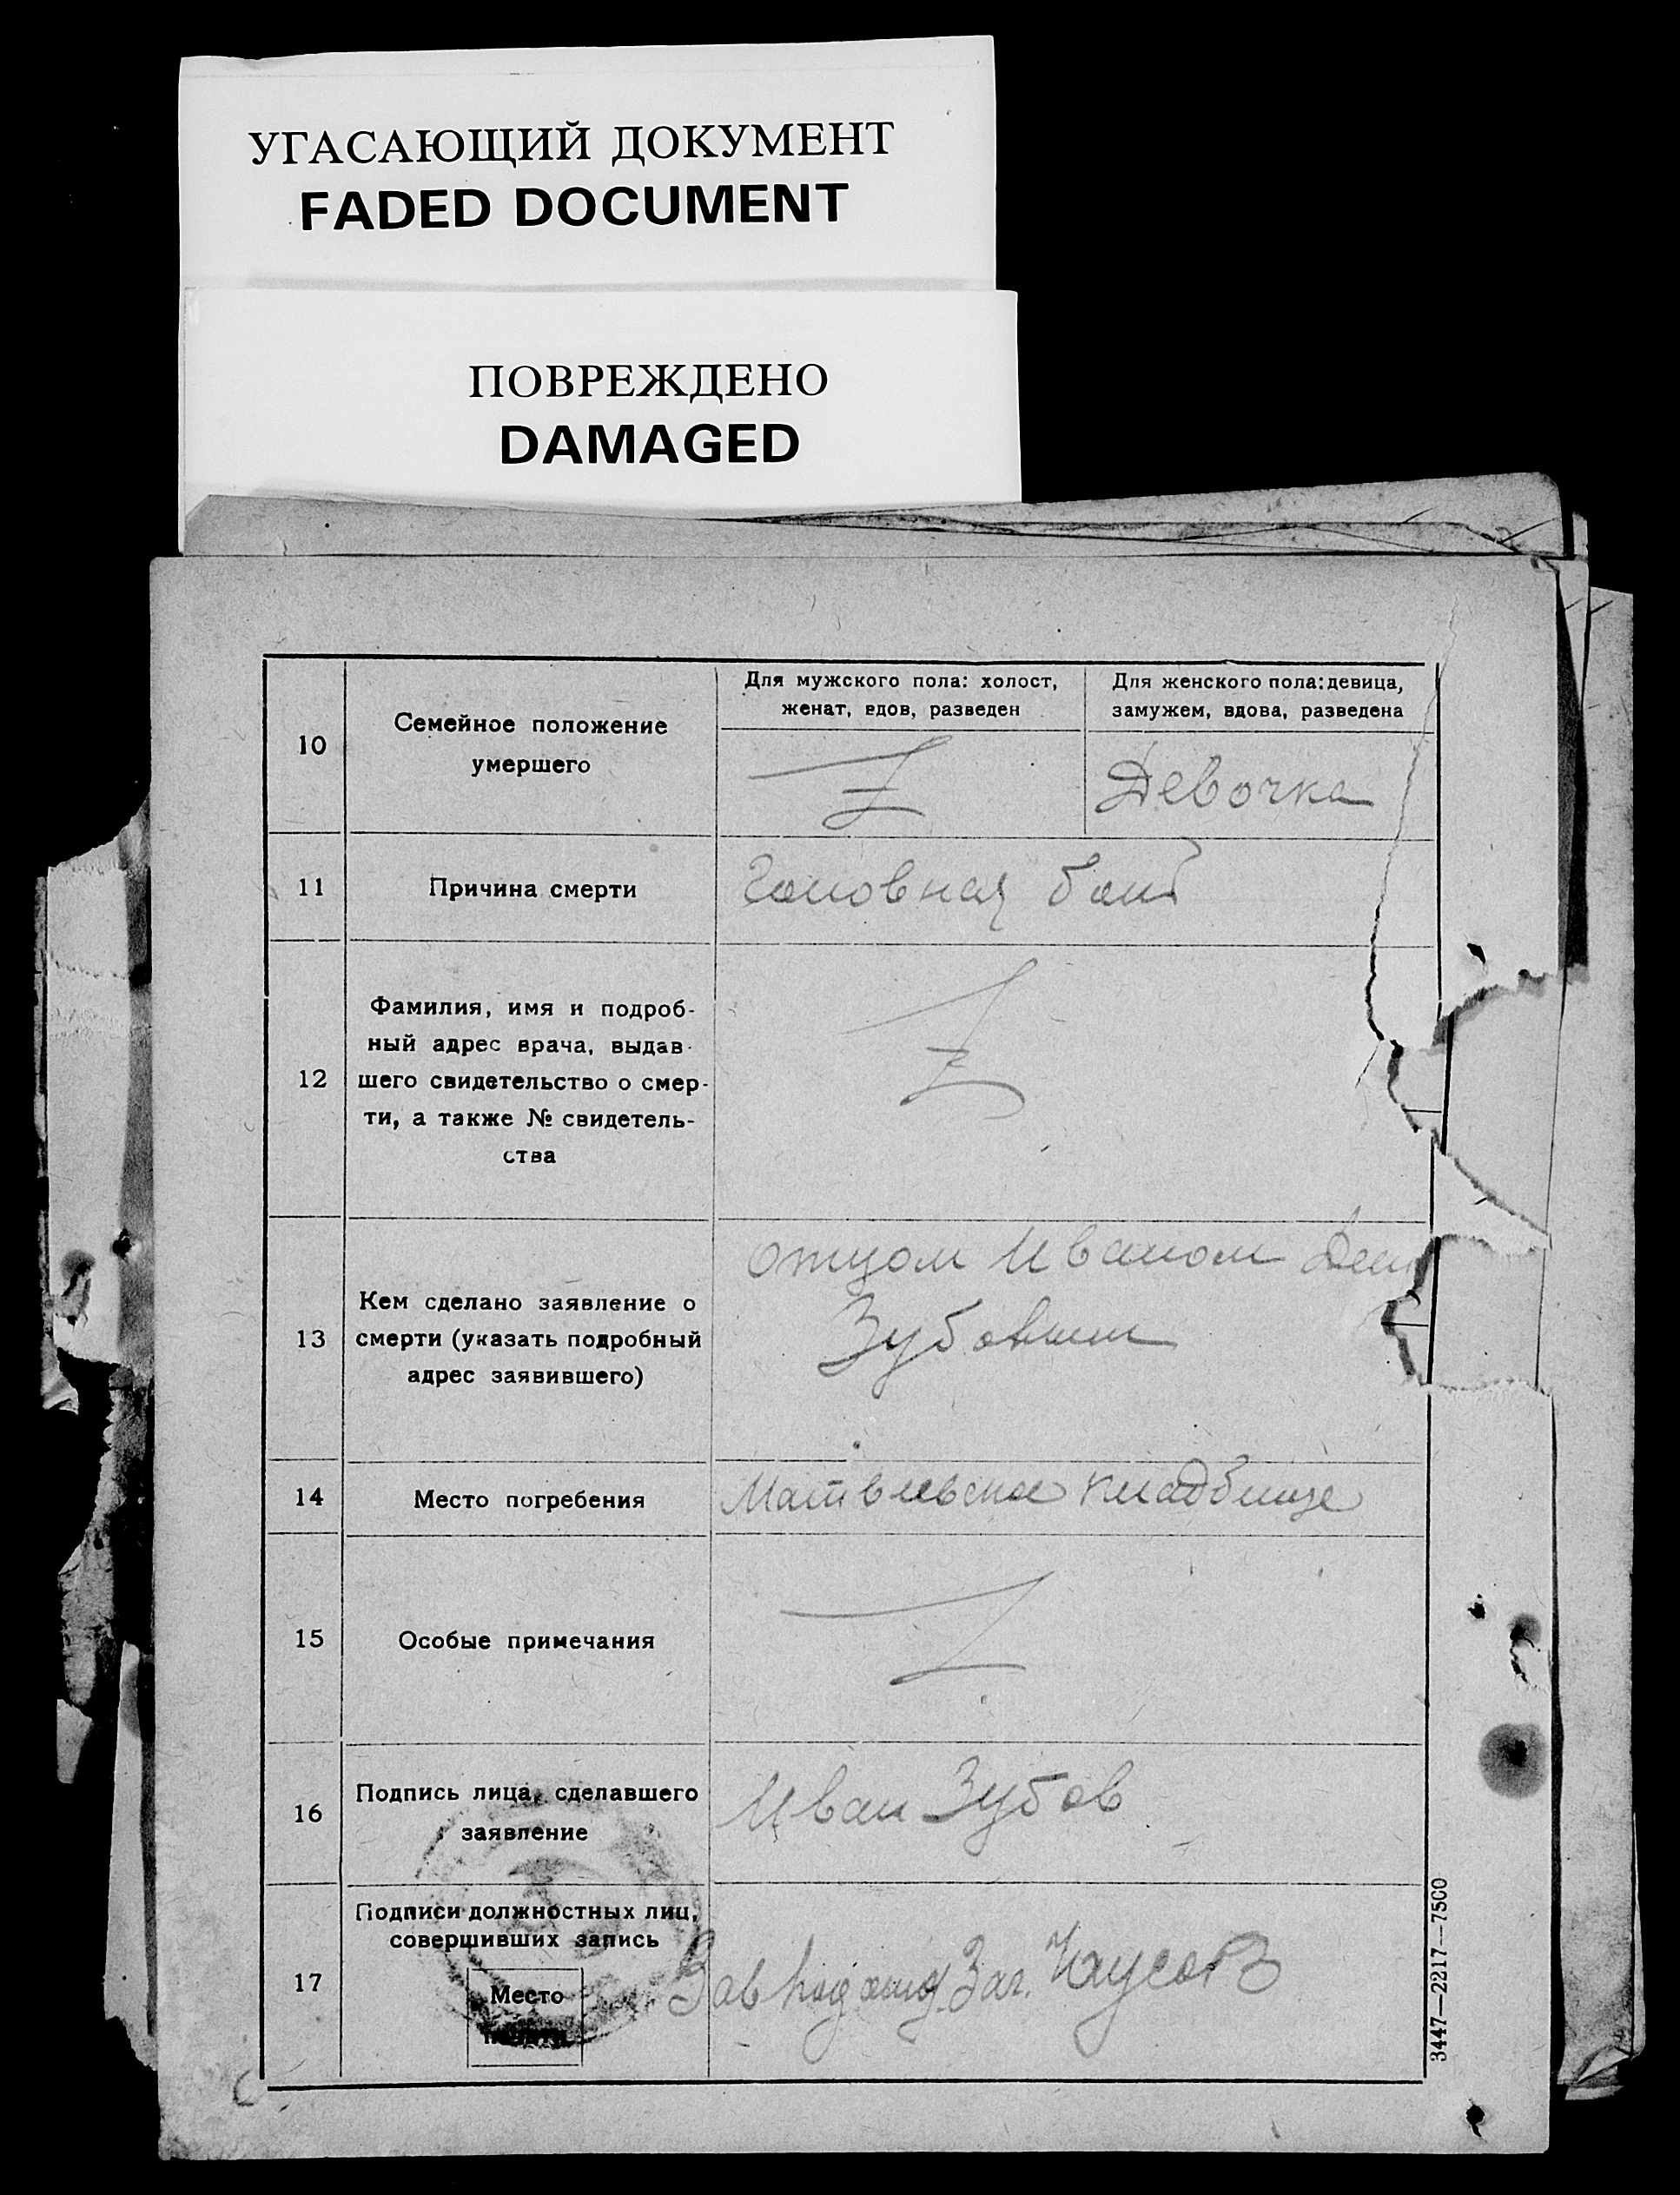 УГАСАЮЩИЙ ДОКУМЕНТ
FADED DOCUMENT
ПОВРЕЖДЕНО
DAMAGED
10
Семейное положение
умершего
Для мужского пола: холост,
женат, вдов, разведен
Для женского пола: девица,
замужем, вдова, разведена
Девочка
11
Причина смерти
Головная боль
12
Фамилия, имя и подроб-
ный адрес врача, выдав-
шего свидетельство о смер-
ти, а также № свидетель-
ства
13
Кем сделано заявление о
смерти (указать подробный
адрес заявившего)
отцом Иваном
Зубовым
14
Место погребения
Матвеевское кладбище
15
Особые примечания
16
Подпись лица, сделавшего
заявление
Иван Зубов
17
Подписи должностных лиц,
совершивших запись
Место
печати
Зав Заг.
3447—2217—7500